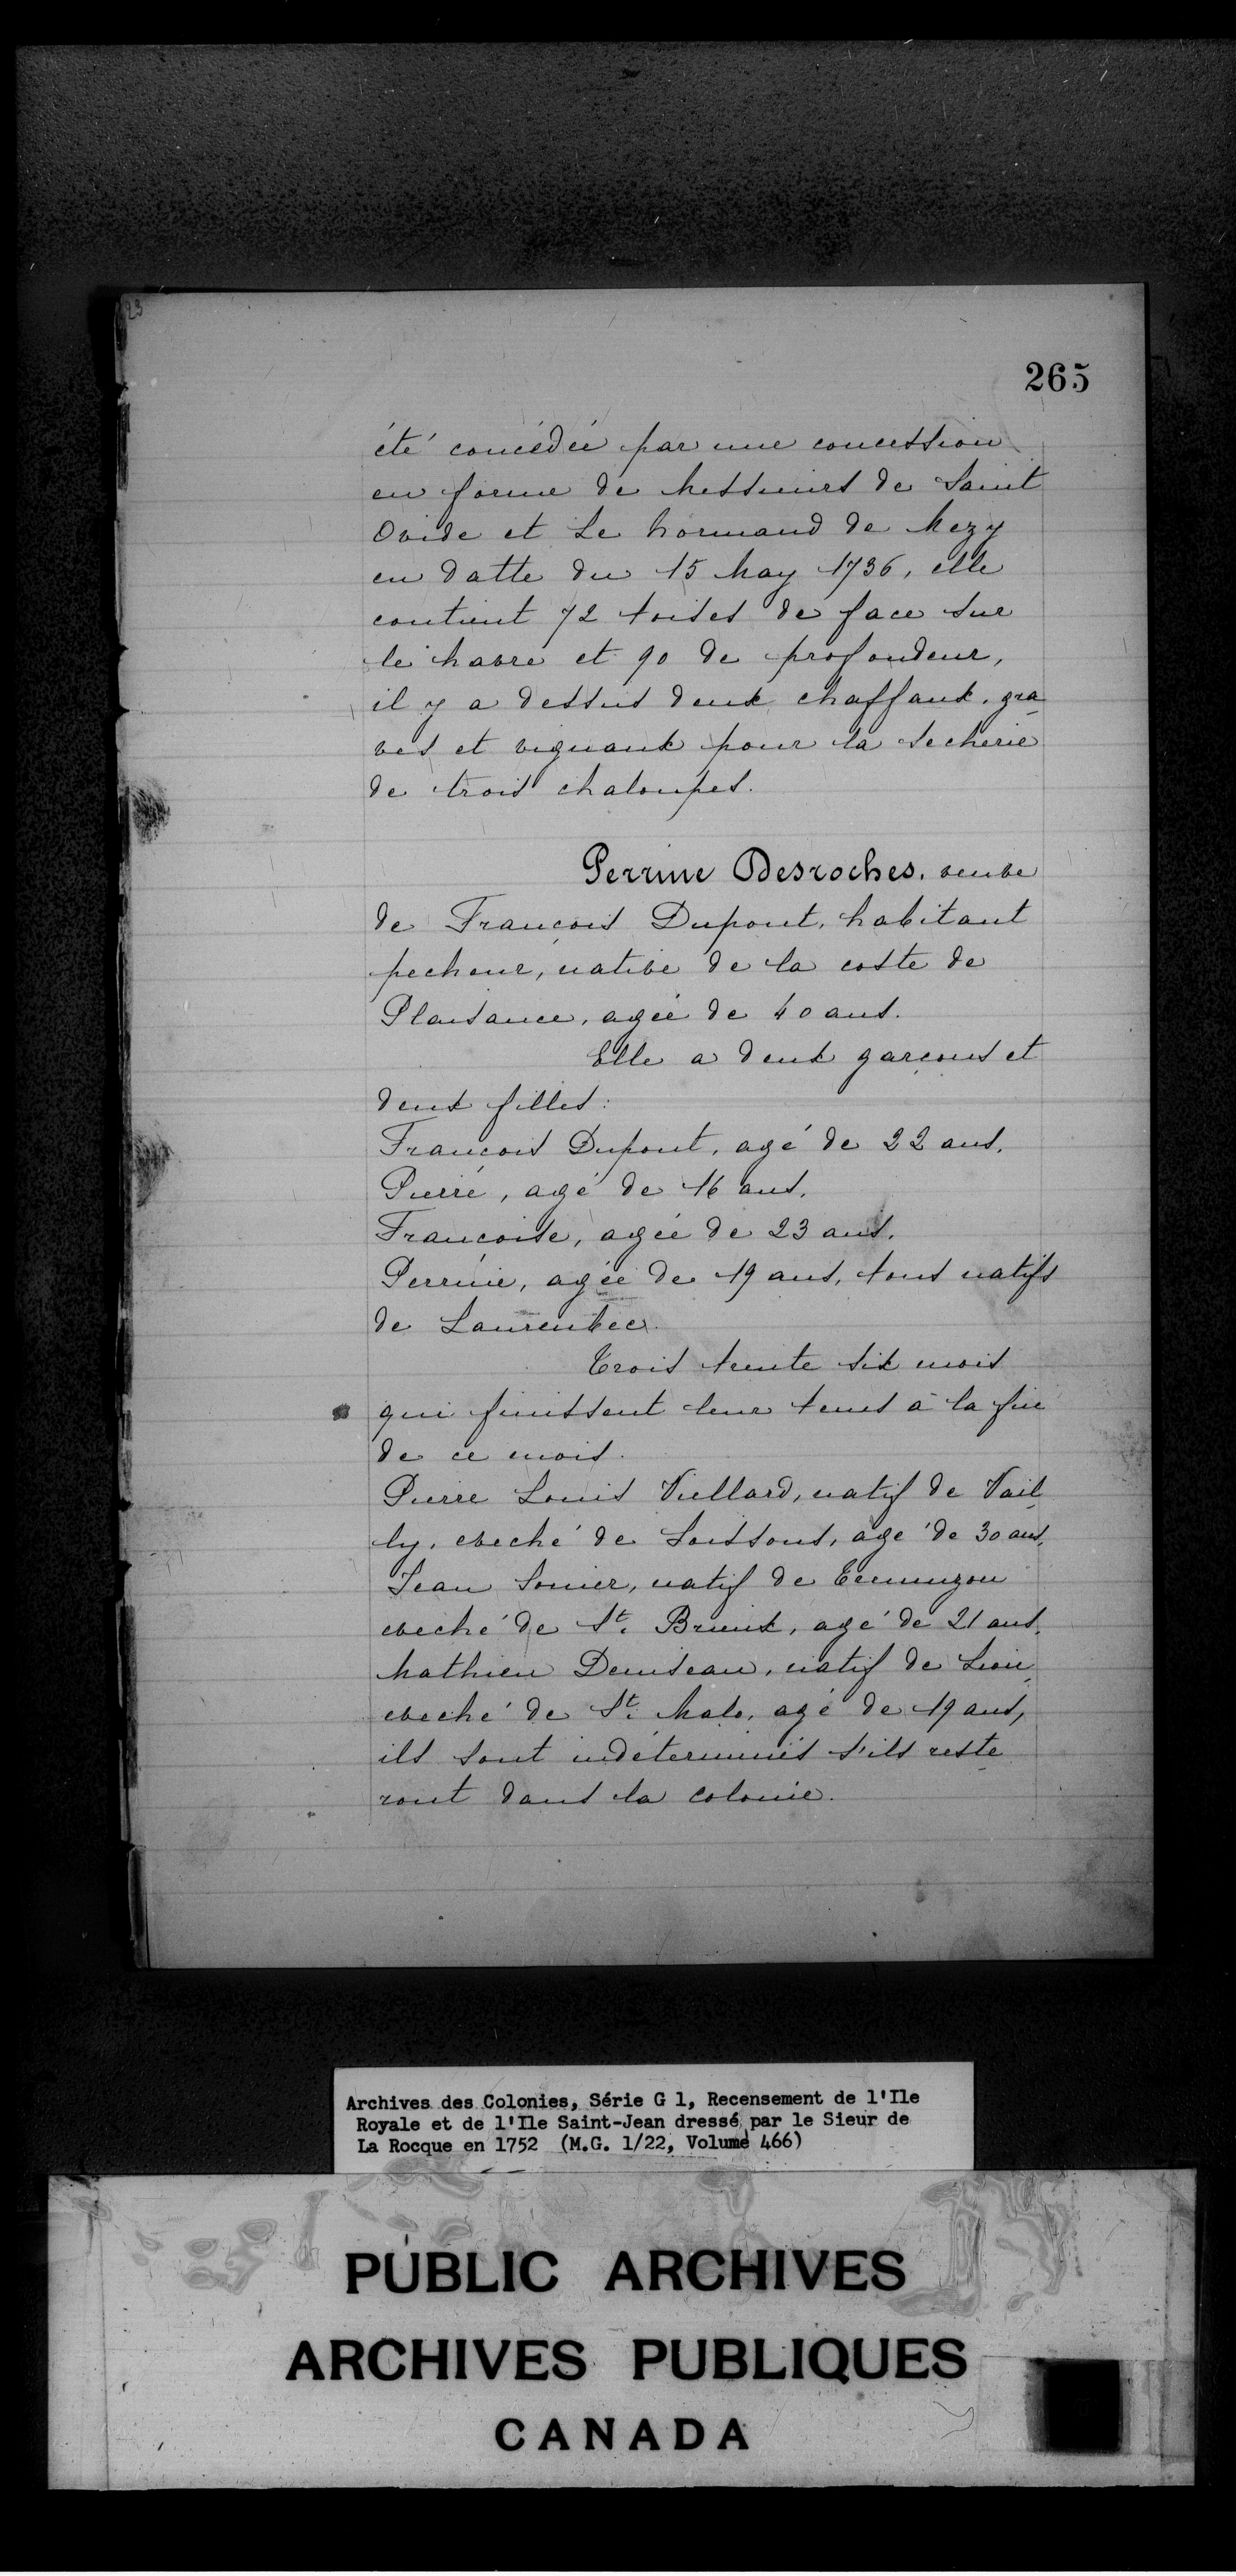 23
265
été concédée par une concession
en forme de Messieurs de Saint
Ovide et Le Normand de Mezy
en datte du 15 May 1736, elle
contient 72 toises de face sur
le havre et 90 de profondeur,
il y a dessus deux chaffaux, gra
ves et vignaux pour la secherie
de trois chaloupes.
Perrine Desroches, veuve
de François Dupont, habitant
pecheur, native de la coste de
Plaisance, agée de 40 ans.
Elle a deux garçons et
deux filles:
François Dupont, agé de 22 ans,
Pierre, agé de 16 ans,
Françoise, agée de 23 ans,
Perrine, agée de 19 ans, tous natifs
de Laurembec.
Trois trente six mois
qui finissent leur tems à la fin
de ce mois.
Pierre Louis Viellard, natif de Vail
ly, eveché de Soissons, agé de 30 ans,
Jean Sonier, natif de
eveché de St. Brieux, agé de 21 ans,
Mathieu Deniseau, natif de
eveché de St. Malo, agé de 19 ans,
ils sont indéterminés s'ils reste
ront dans la colonie.
Archives des Colonies, Série G 1, Recensement de l'Ile
Royale et de l'Ile Saint-Jean dressé par le Sieur de
La Rocque en 1752 (M.G. 1/22, Volume 466)
PUBLIC ARCHIVES
ARCHIVES PUBLIQUES
CANADA